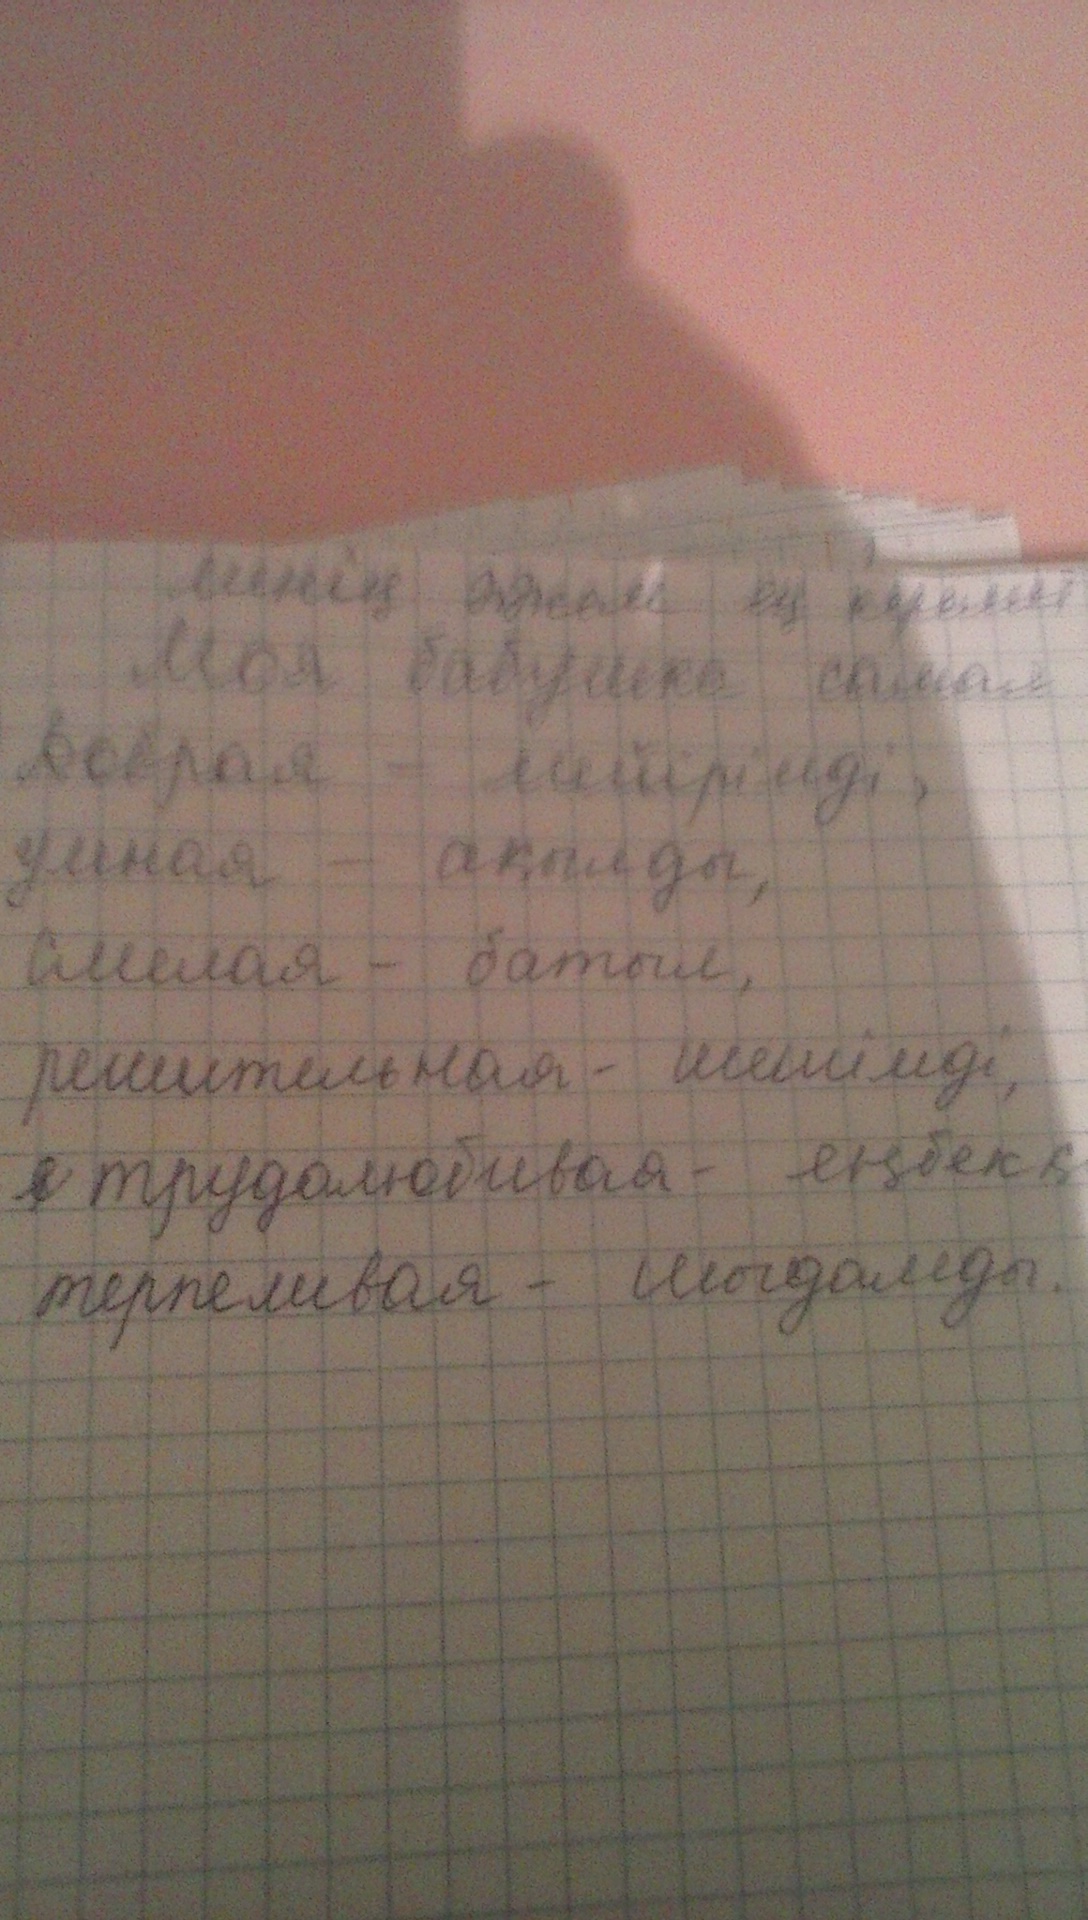 менің әжем ең
Моя бабушка самая
добрая - мейірімді,
умная - ақылды,
смелая - батыл,
решительная - шешімді,
трудолюбивая - еңбекқ
терпеливая - шыдамды.